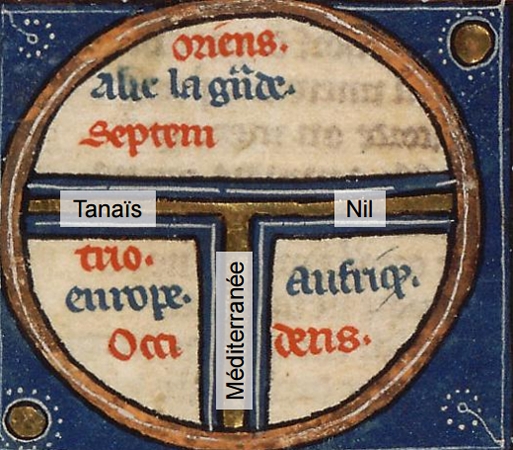 oriens.
Asie la gñde.
Septem
Tanaïs
Nil
trio.
europe.
Aufriq̄.
Méditerranée
Occi
dens.